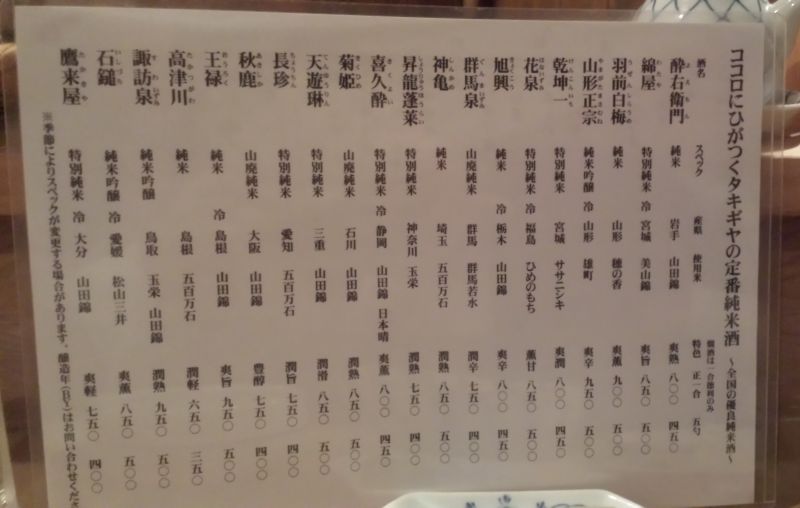 ココロにひがつくタキギヤの定番純米酒 ～全国の優良純米酒～
燗酒は一合徳利のみ
酒名 スペック 産県 使用米 特色 正一合 五勺
酔右衛門 よえもん 純米 岩手 山田錦 爽熟 八〇〇 四五〇
綿屋 わたや 特別純米 冷 宮城 美山錦 爽旨 八五〇 五〇〇
羽前白梅 うぜんしらうめ 純米 山形 穂の香 爽薫 九〇〇 五〇〇
山形正宗 やまがたまさむね 純米吟醸 冷 山形 雄町 爽辛 九五〇 五五〇
乾坤一 けんこんいち 特別純米 宮城 ササニシキ 爽潤 八〇〇 四五〇
花泉 はないずみ 特別純米 冷 福島 ひめのもち 薫甘 八五〇 五〇〇
旭興 きょくこう 純米 冷 栃木 山田錦 爽辛 八〇〇 四五〇
群馬泉 ぐんまいずみ 山廃純米 群馬 群馬若水 潤辛 七五〇 四〇〇
神亀 しんかめ 純米 埼玉 五百万石 潤熟 八五〇 五〇〇
昇龍蓬莱 しょうりゅうほうらい 特別純米 神奈川 玉栄 潤熟 七五〇 四〇〇
喜久酔 きくよい 特別純米 冷 静岡 山田錦 日本晴 爽薫 八〇〇 四五〇
菊姫 きくひめ 山廃純米 石川 山田錦 潤熟 八五〇 五〇〇
天遊琳 てんゆうりん 特別純米 三重 山田錦 潤滑 八五〇 五〇〇
長珍 ちょうちん 特別純米 愛知 五百万石 潤旨 七五〇 四〇〇
秋鹿 あきしか 山廃純米 大阪 山田錦 豊醇 七五〇 四〇〇
王祿 おうろく 純米 冷 島根 山田錦 爽旨 九五〇 五〇〇
高津川 たかつがわ 純米 島根 五百万石 潤軽 六五〇 三五〇
諏訪泉 すわいずみ 純米吟醸 鳥取 玉栄 山田錦 潤熟 九五〇 五〇〇
石鎚 いしづち 純米吟醸 冷 愛媛 松山三井 爽薫 八五〇 五〇〇
鷹来屋 たかきや 特別純米 冷 大分 山田錦 爽軽 七五〇 四〇〇
※季節によりスペックが変更する場合があります。醸造年(BY)はお問い合わせくださ